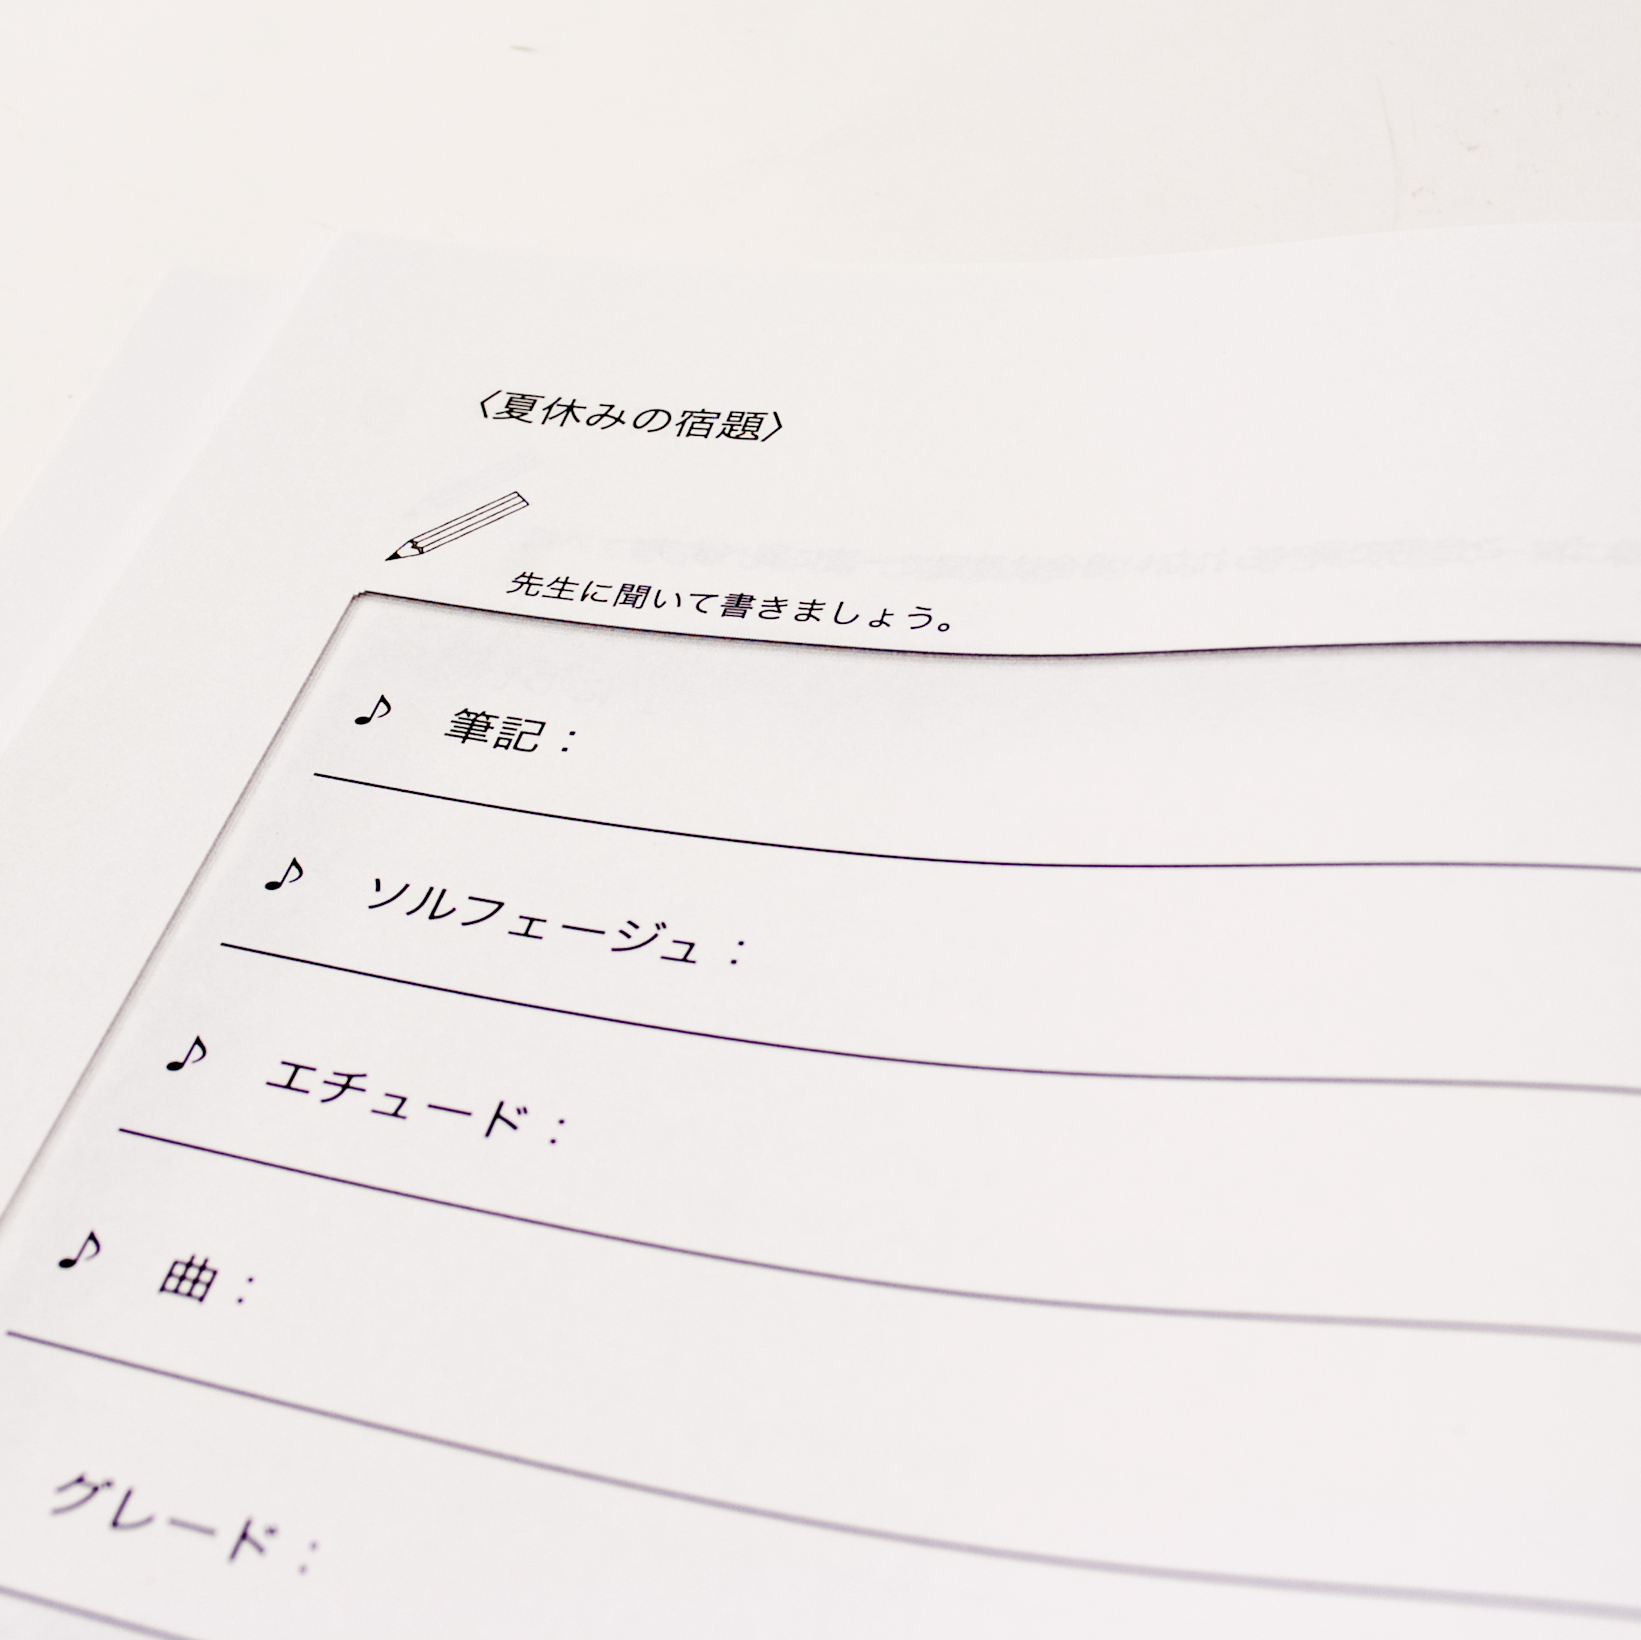 〈夏休みの宿題〉
先生に聞いて書きましょう。
♪ 筆記：
♪ ソルフェージュ：
♪ エチュード：
♪ 曲：
グレード：